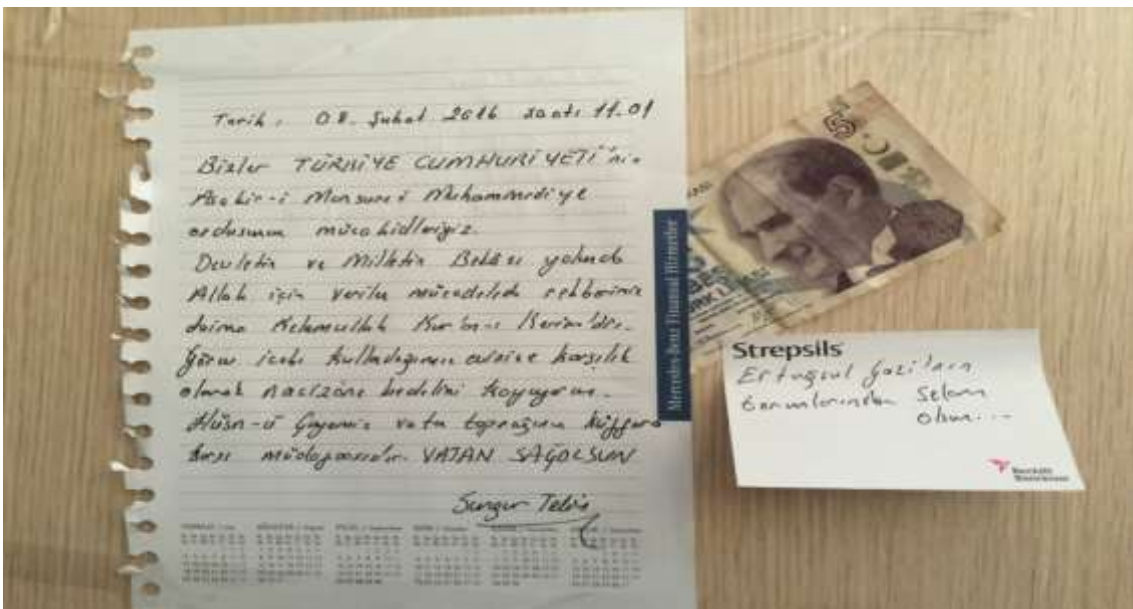 Tarih : 08. Şubat 2016 saat: 11.01
Bizler TÜRKİYE CUMHURİYETİ'nin
Asakir-i Mansure-i Muhammediye
ordusunun mücahidleriyiz.
Devletin ve Milletin Bekası yolunda
Allah için verilen mücadelede rehberimiz
daima Kelamullah Kur'an-ı Kerim'dir.
Görev icabı kulladığımız evinize karşılık
olarak nacizane bedelini koyuyoruz.
Hüsn-ü Gayemiz vatan toprağının küffara
karşı müdafaasıdır. VATAN SAĞOLSUN
Sungur Tekin
Mercedes-Benz Finansal Hizmetler
5
Strepsils
Ertuğrul Gazi'nin
torunlarından Selam
olsun...
Reckitt
Benckiser